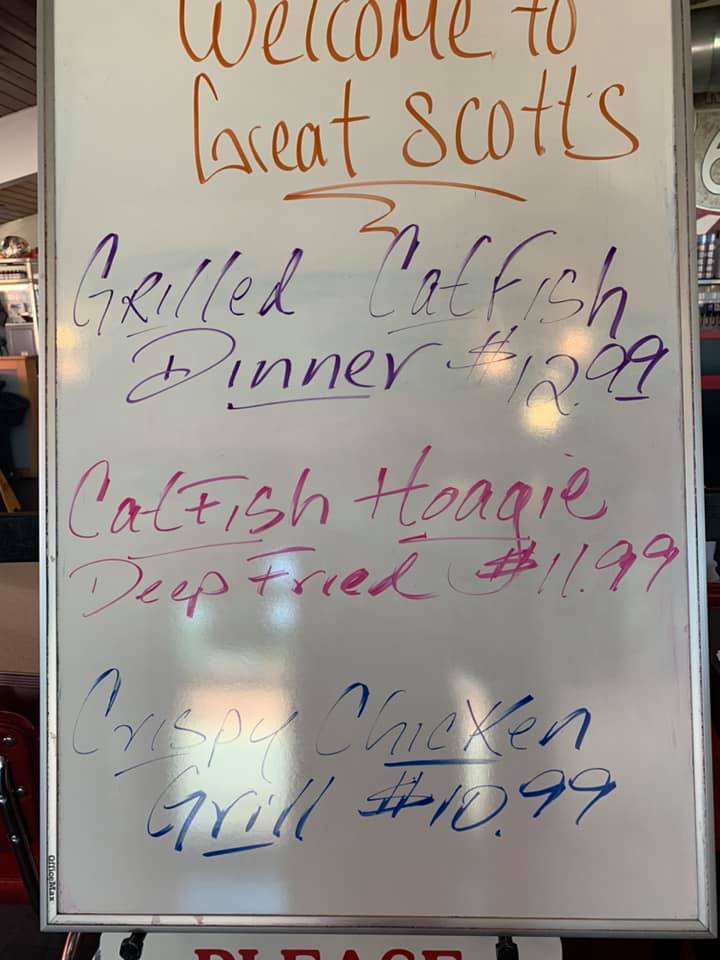 Welcome to
Great Scott's
Grilled Catfish
Dinner $12.99
Catfish Hoagie
Deep Fried $11.99
Crispy Chicken
Grill $10.99
OfficeMax
PLEASE